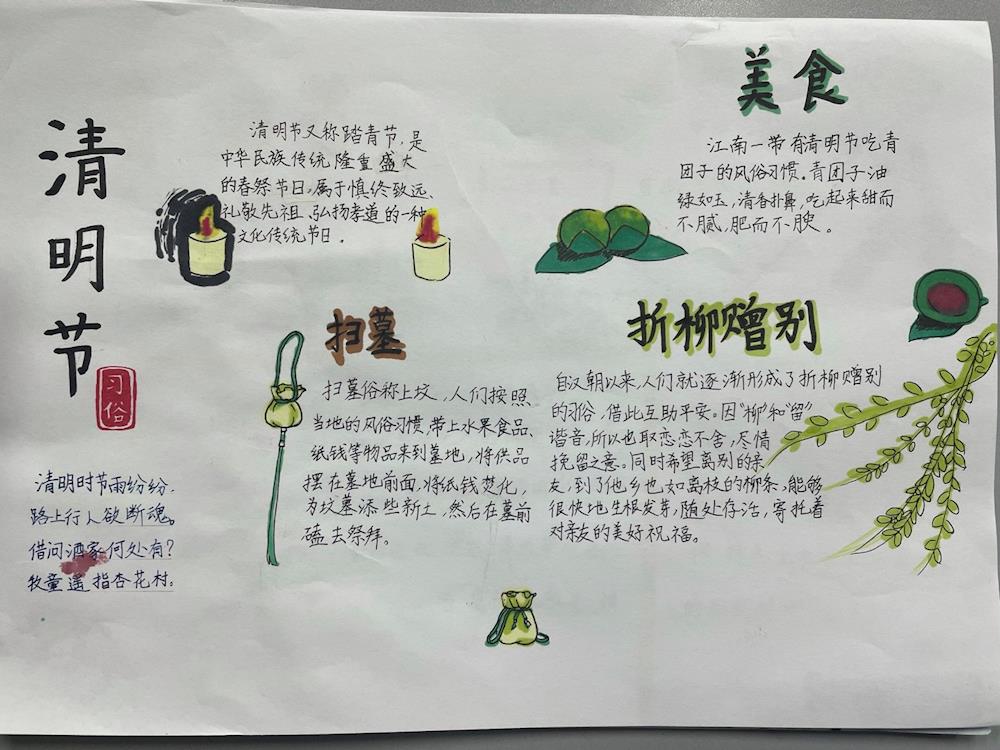 清明节
习俗
清明节又称踏青节,是
中华民族传统隆重盛大
的春祭节日,属于慎终致远、
礼敬先祖、弘扬孝道的一种
文化传统节日。
美食
江南一带有清明节吃青
团子的风俗习惯。青团子油
绿如玉,清香扑鼻,吃起来甜而
不腻,肥而不腴。
扫墓
扫墓俗称上坟,人们按照
当地的风俗习惯,带上水果食品、
纸钱等物品来到墓地,将供品
摆在墓地前面,将纸钱焚化,
为坟墓添些新土,然后在墓前
磕去祭拜。
折柳赠别
自汉朝以来,人们就逐渐形成了折柳赠别
的习俗,借此互助平安。因"柳"和"留"
谐音,所以也取恋恋不舍,尽情
挽留之意。同时希望离别的亲
友,到了他乡也如离枝的柳条,能够
很快地生根发芽,随处存活,寄托着
对亲友的美好祝福。
清明时节雨纷纷,
路上行人欲断魂。
借问酒家何处有?
牧童遥指杏花村。